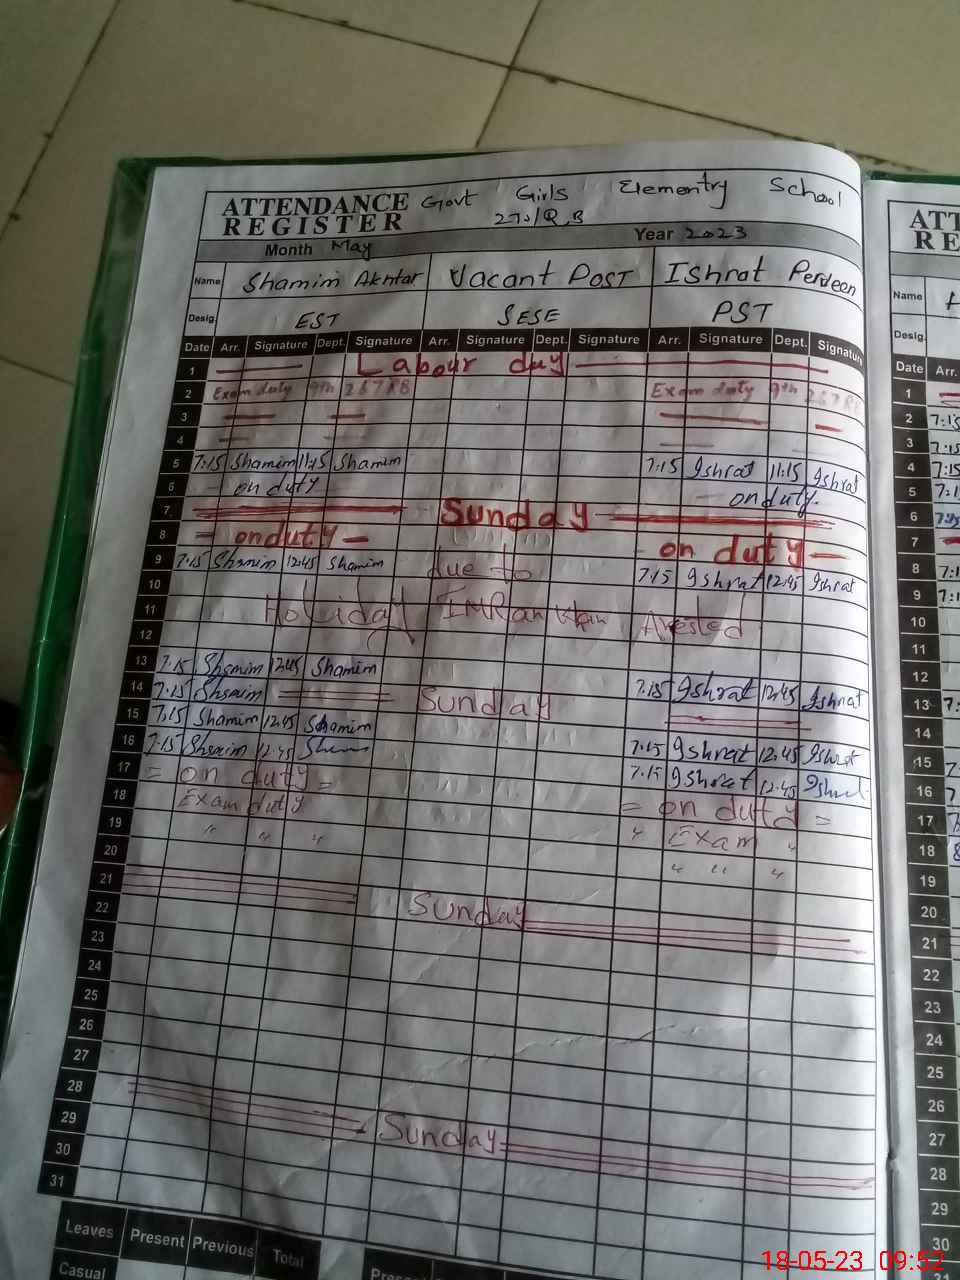 ATTENDANCE REGISTER Govt Girls Elementry School
270/RB
Month May Year 2023
Name Shamim Akhtar Vacant Post Ishrat Perdeen
Desig. EST SESE PST
Date Arr. Signature Dept. Signature Arr. Signature Dept. Signature Arr. Signature Dept. Signature
1 Labour duy
2 Exam duty 9th 267 RB Exam duty 9th 267 RB
3
4
5 7:15 Shamim 11:15 Shamim 7:15 Ishrat 11:15 Ishrat
6 on duty on duty.
7 Sunday
8 on duty on duty
9 7:15 Shamim 12:45 Shamim due to 7:15 Ishrat 12:45 Ishrat
10
11 Holiday IMRan Khan Arested
12
13 7:15 Shamim 12:45 Shamim 7:15 Ishrat 12:45 Ishrat
14 7:15 Shamim Sunday
15 7:15 Shamim 12:45 Shamim 7:15 Ishrat 12:45 Ishrat
16 7:15 Shamim 12:45 7:15 Ishrat 12:45 Ishrat
17 = on duty = = on duty =
18 Exam duty " Exam "
19 " " " " " "
20
21 Sunday
22
23
24
25
26
27
28 Sunday
29
30
31
Leaves Present Previous Total
Casual
Name
Desig.
Date Arr.
1
2 7:15
3 7:15
4 7:15
5
6
7
8
9
10
11
12
13
14
15
16
17
18
19
20
21
22
23
24
25
26
27
28
29
30
18-05-23 09:52